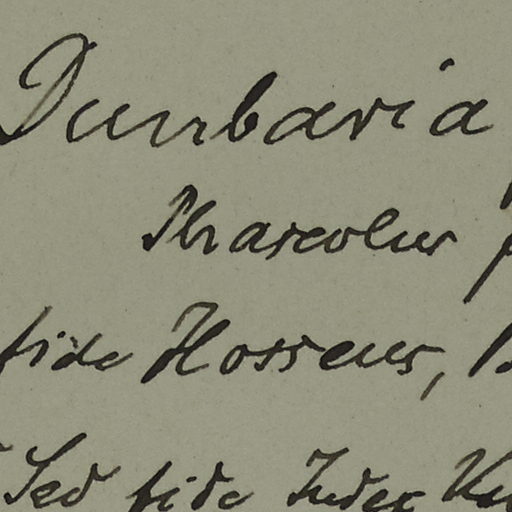 Dunbaria
Phaseolus
fide Hosseus,
Sed fide Index